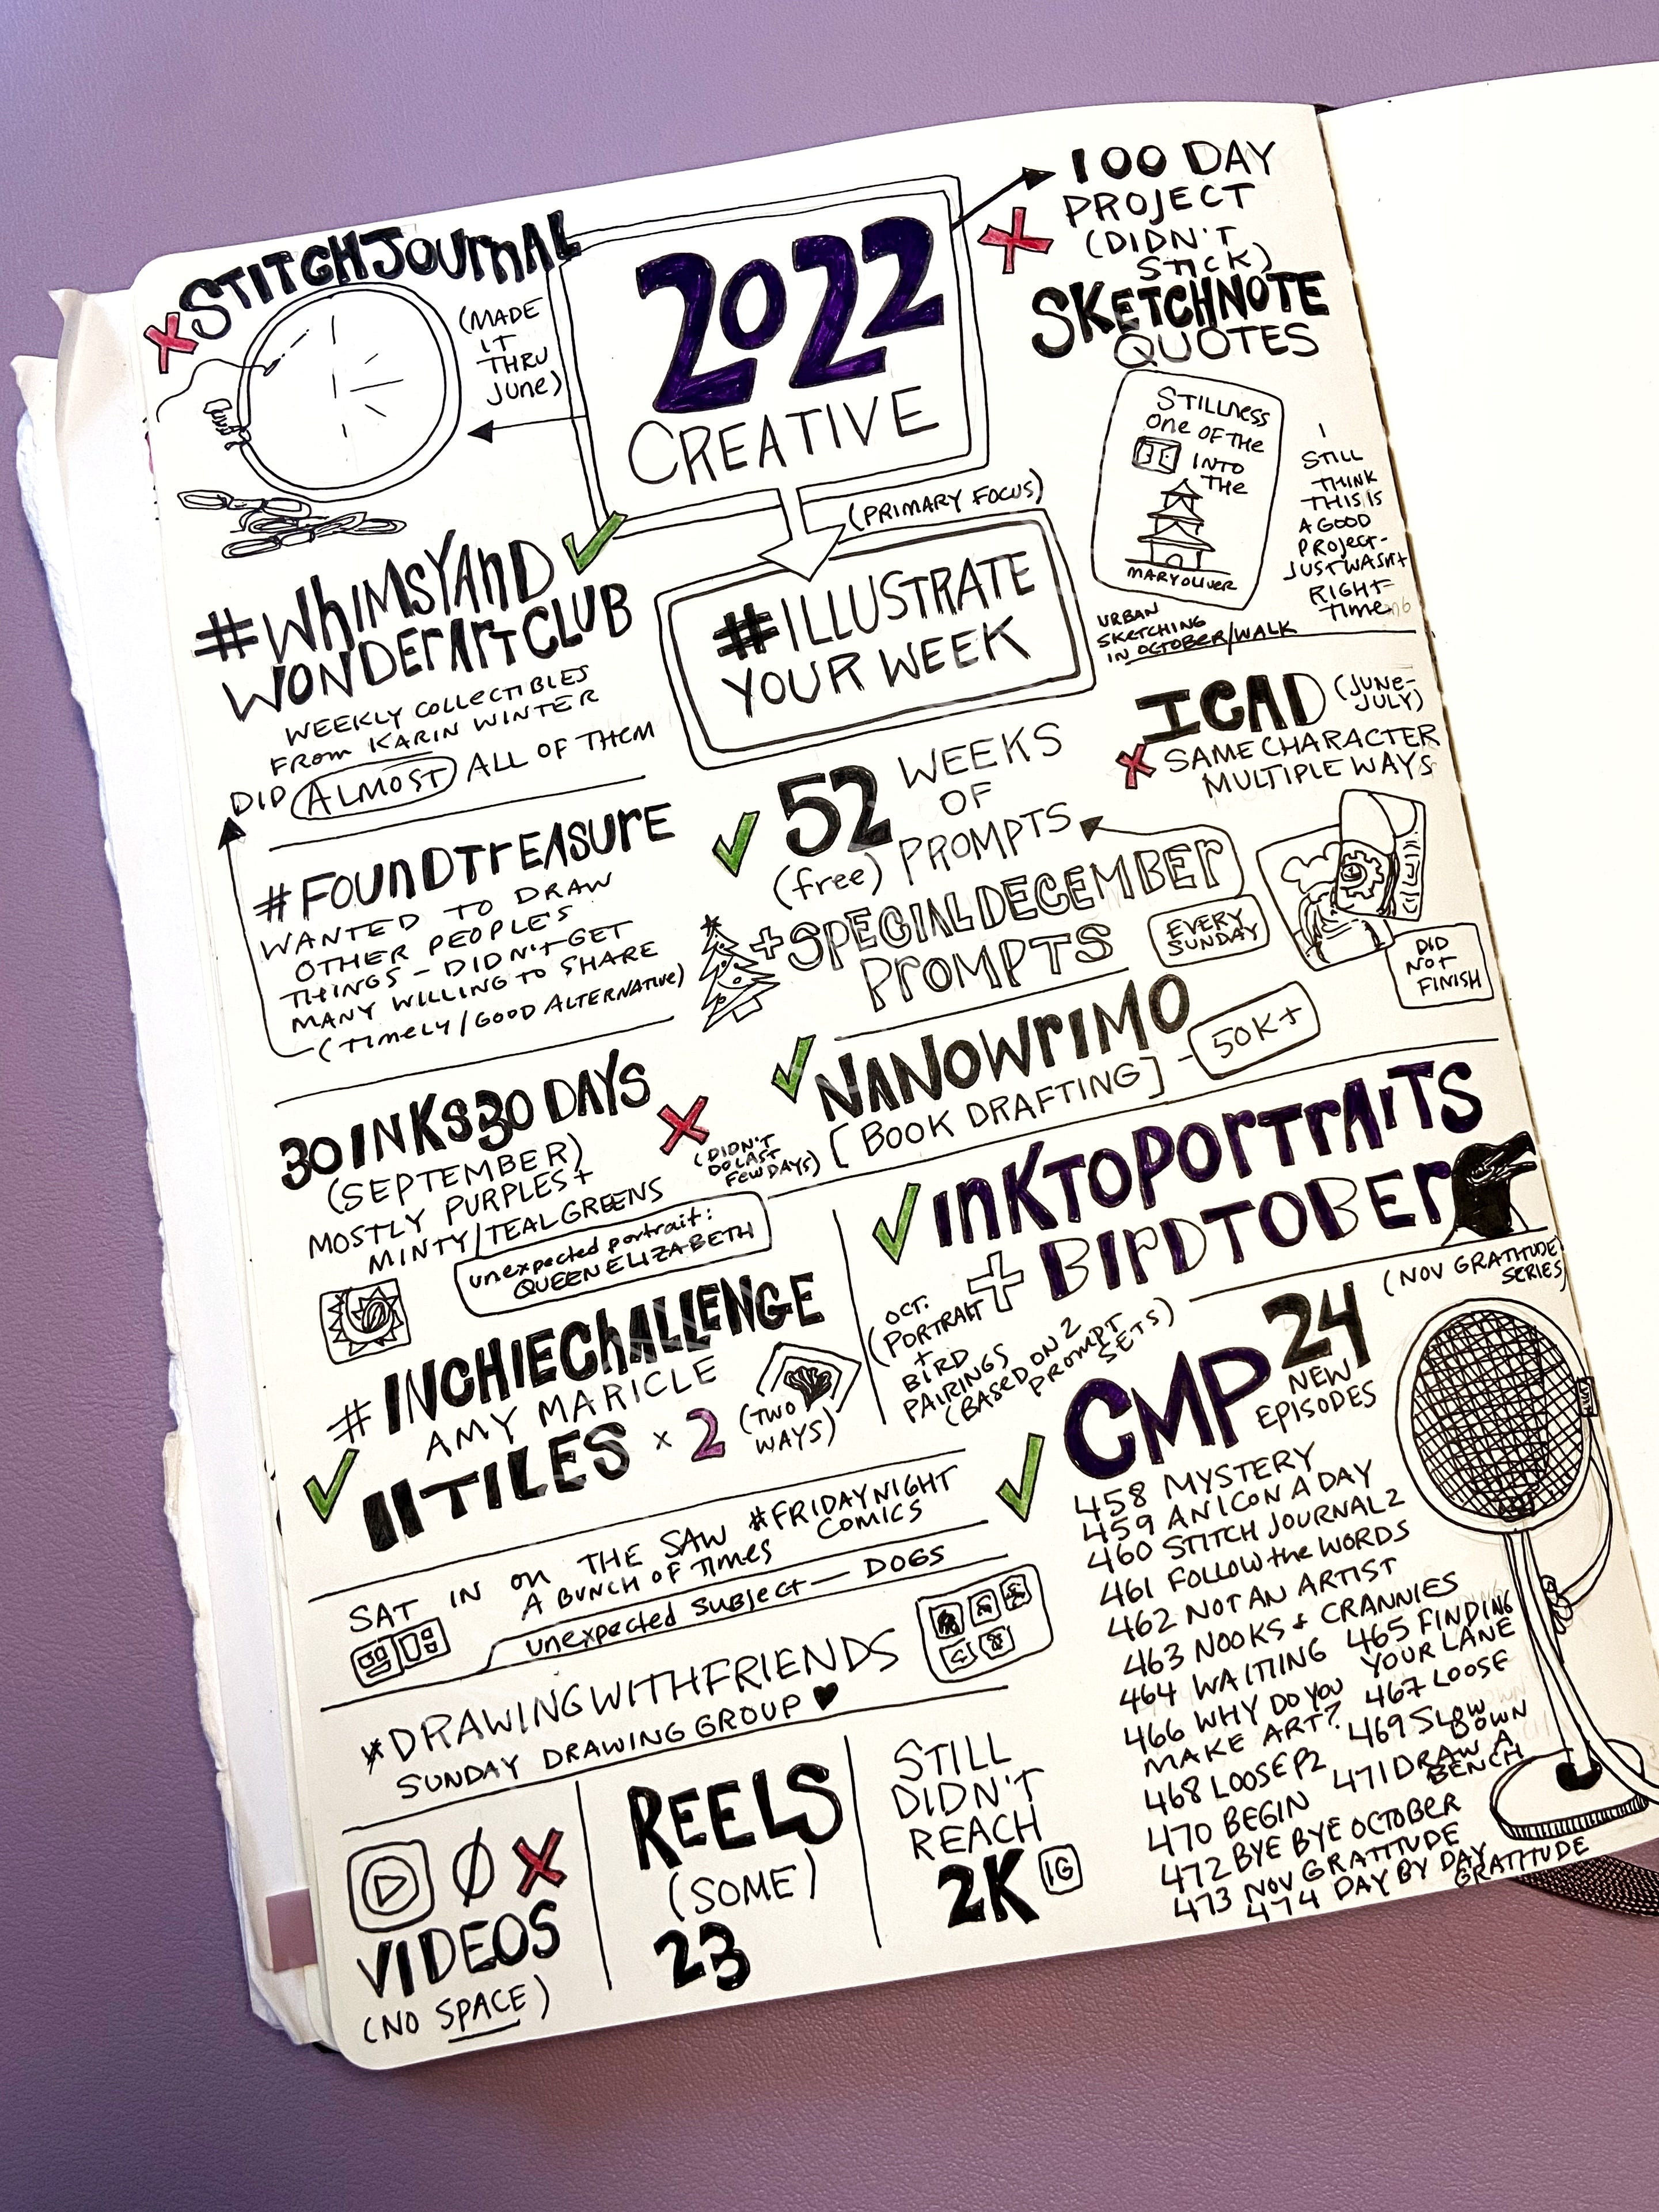 STITCHJOURNAL
(MADE
IT
THRU
JUNE)
2022
CREATIVE
100 DAY
PROJECT
(DIDN'T
STICK)
SKETCHNOTE
QUOTES
STILLNESS
ONE OF THE
INTO
THE
MARY OLIVER
I
STILL
THINK
THIS IS
A GOOD
PROJECT-
JUST WASN'T
RIGHT
TIME
URBAN
SKETCHING
IN OCTOBER/WALK
(PRIMARY FOCUS)
#ILLUSTRATE
YOUR WEEK
#WHIMSYAND
WONDERARTCLUB
WEEKLY COLLECTIBLES
FROM KARIN WINTER
DID ALMOST ALL OF THEM
ICAD (JUNE-
JULY)
SAME CHARACTER
MULTIPLE WAYS
DID
NOT
FINISH
52 WEEKS
OF
(free) PROMPTS
+SPECIAL DECEMBER
PROMPTS
EVERY
SUNDAY
#FOUNDTREASURE
WANTED TO DRAW
OTHER PEOPLE'S
THINGS - DIDN'T GET
MANY WILLING TO SHARE
(TIMELY/GOOD ALTERNATIVE)
NANOWRIMO
[BOOK DRAFTING] - 50K+
30INKS30DAYS
(SEPTEMBER)
MOSTLY PURPLES +
MINTY/TEAL GREENS
(DIDN'T
DO LAST
FEW DAYS)
unexpected portrait:
QUEEN ELIZABETH
INKTOPORTRAITS
+ BIRDTOBER
OCT.
(PORTRAIT
+
BIRD
PAIRINGS
(BASED ON 2
PROMPT
SETS)
#INCHIECHALLENGE
AMY MARICLE
11 TILES x 2 (TWO
WAYS)
SAT IN ON THE SAW #FRIDAYNIGHT
COMICS
A BUNCH OF TIMES
unexpected subject - DOGS
#DRAWINGWITHFRIENDS
SUNDAY DRAWING GROUP ♥
(NOV GRATITUDE
SERIES)
CMP 24
NEW
EPISODES
458 MYSTERY
459 AN ICON A DAY
460 STITCH JOURNAL 2
461 FOLLOW the WORDS
462 NOT AN ARTIST
463 NOOKS + CRANNIES
464 WAITING 465 FINDING
YOUR LANE
466 WHY DO YOU
MAKE ART? 467 LOOSE
468 LOOSE P2 469 SLOW
DOWN
470 BEGIN 471 DRAW A
BENCH
472 BYE BYE OCTOBER
473 NOV GRATITUDE
474 DAY BY DAY
GRATITUDE
Ø
VIDEOS
(NO SPACE)
REELS
(SOME)
23
STILL
DIDN'T
REACH
2K IG